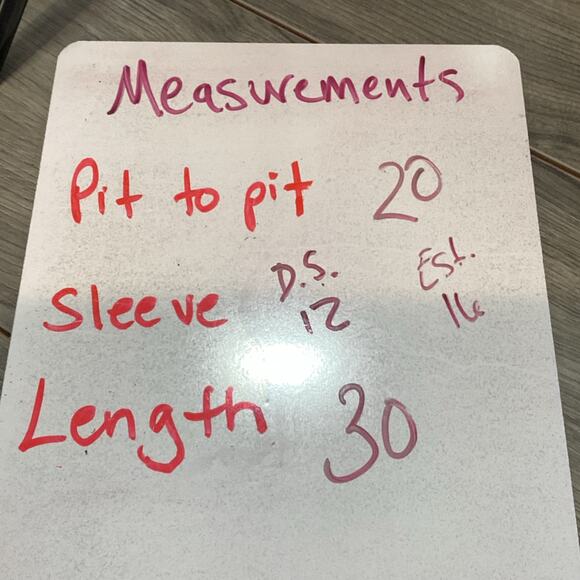 Measurements
Pit to pit 20
Sleeve D.S. 12 Est. 16
Length 30